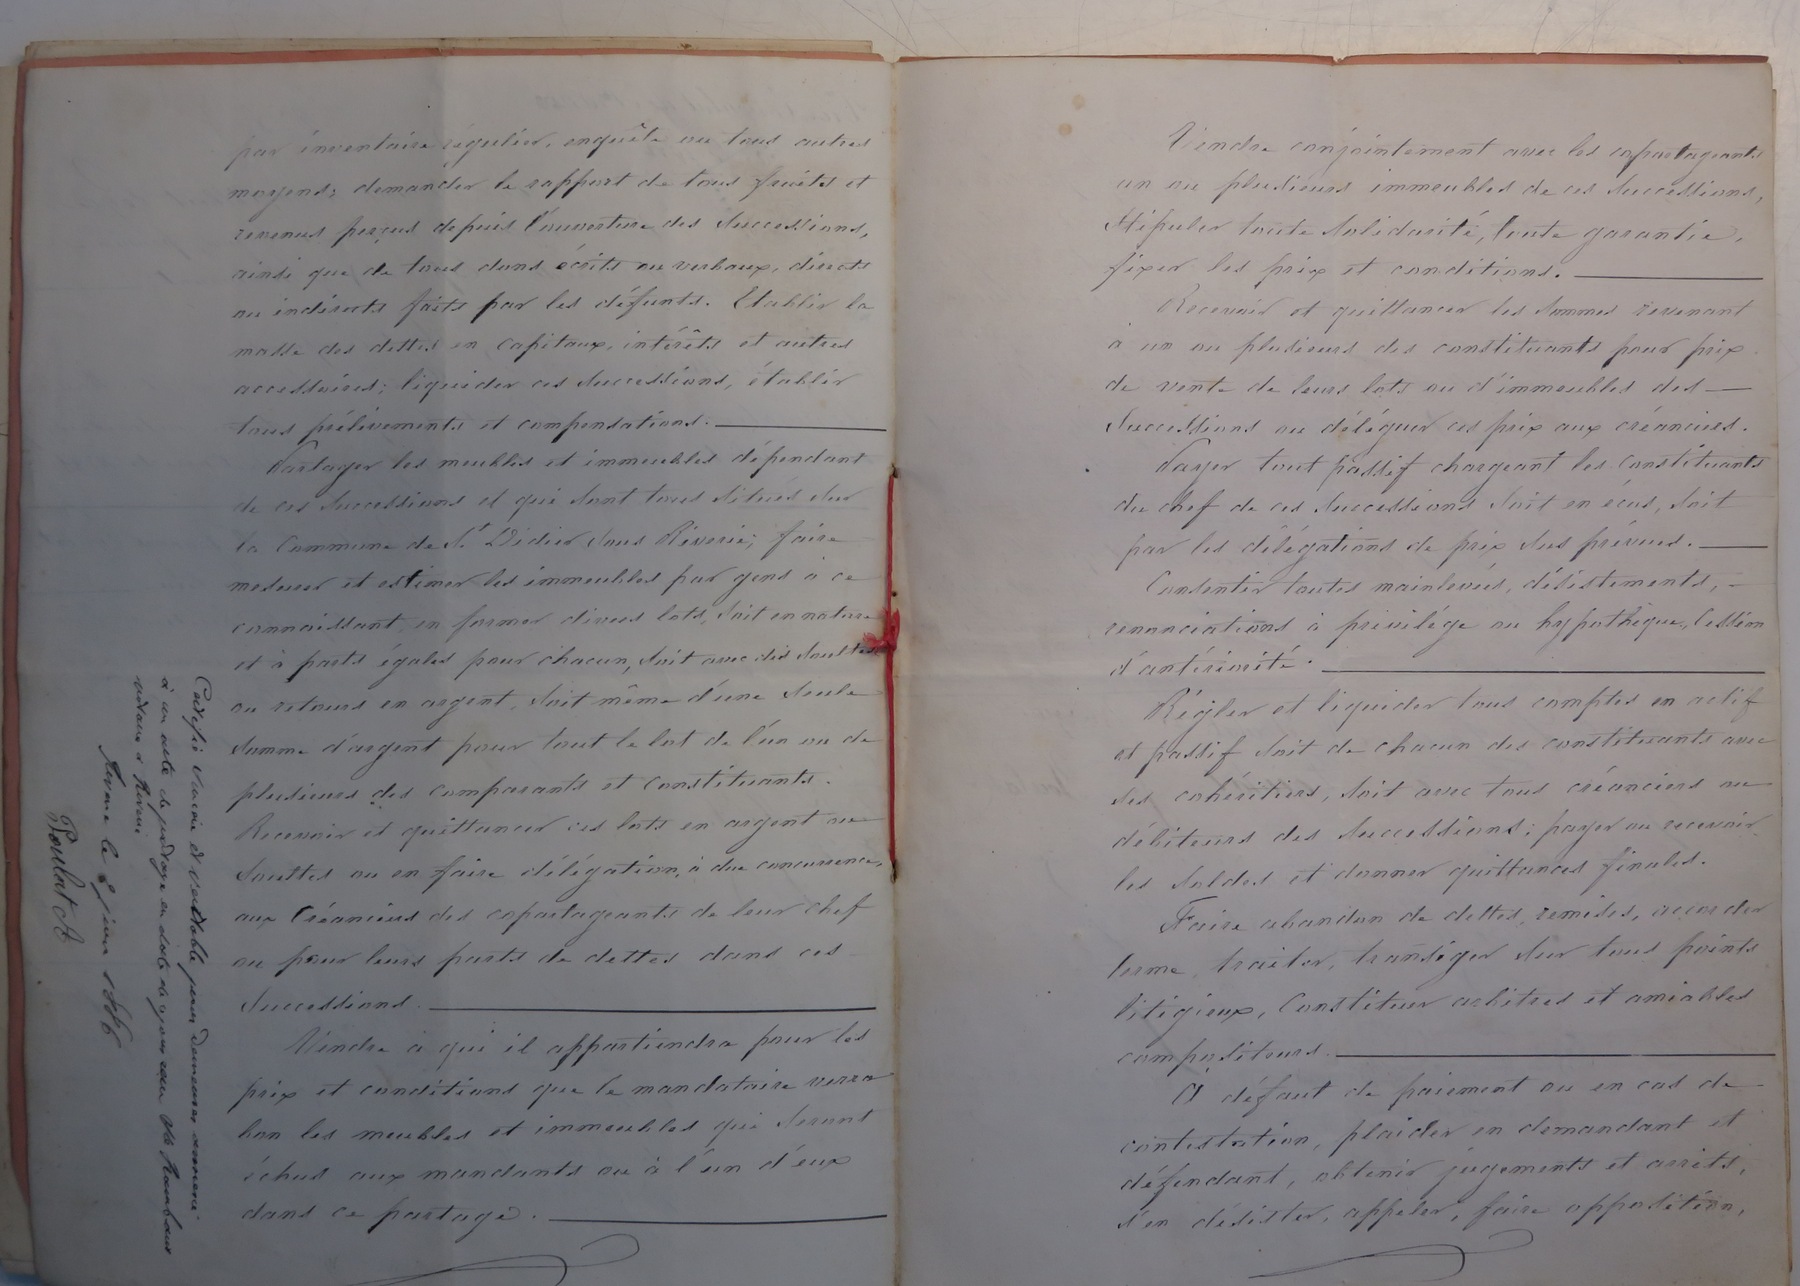 par inventaire régulier, enquête ou tous autres
moyens; demander le rapport de tous fruits et
revenus perçus depuis l'ouverture des Successions,
ainsi que de tous dons écrits ou verbaux, directs
ou indirects faits par les défunts. Etablir la
masse des dettes en Capitaux, intérêts et autres
accessoires; liquider ces Successions, établir
tous prélèvements et compensations.
Partager les meubles et immeubles dépendant
de ces Successions et qui sont tous situés sur
la Commune de St Didier sous Riverie; faire
mesurer et estimer les immeubles par gens à ce
connaissant, en former divers lots, soit en nature
et à parts égales pour chacun, soit avec des soultes
ou retours en argent, soit même d'une seule
somme d'argent pour tout le lot de l'un ou de
plusieurs des comparants et Constituants.
Recevoir et quittancer ces lots en argent ou
soultes ou en faire délégation, à due concurrence,
aux Créanciers des copartageants de leur chef
ou pour leurs parts de dettes dans ces
Successions.
Vendre à qui il appartiendra pour les
prix et conditions que le mandataire verra
bon les meubles et immeubles qui seront
échus aux mandants ou à l'un d'eux
dans ce partage.
Certifié sincère et véritable pour demeurer annexé
à un acte de partage en date de ce jour reçu Me
notaire à Riverie
Riverie le 2 juin 1886
Poulat A
Vendre conjointement avec les copartageants
un ou plusieurs immeubles de ces Successions,
Stipuler toute solidarité, toute garantie,
fixer les prix et conditions.
Recevoir et quittancer les sommes revenant
à un ou plusieurs des constituants pour prix
de vente de leurs lots ou d'immeubles des
Successions ou déléguer ces prix aux créanciers.
Payer tout passif chargeant les Constituants
du chef de ces Successions soit en écus, soit
par les délégations de prix sus prévues.
Consentir toutes mainlevées, désistements,
renonciations à privilège ou hypothèque, Cession
d'antériorité.
Régler et liquider tous comptes en actif
et passif soit de chacun des constituants avec
ses cohéritiers, soit avec tous créanciers ou
débiteurs des Successions; payer ou recevoir
les soldes et donner quittances finales.
Faire abandon de dettes, remises, accorder
terme, traiter, transiger sur tous points
litigieux, Constituer arbitres et amiables
compositeurs.
A défaut de paiement ou en cas de
contestation, plaider en demandant et
défendant, obtenir jugements et arrêts,
s'en désister, appeler, faire opposition,